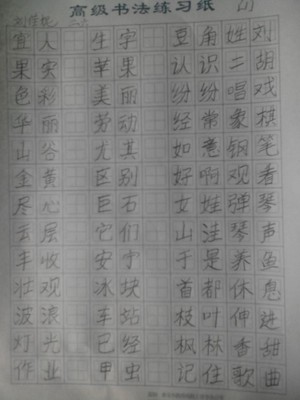 高级书法练习纸
宜人 生字 豆角姓刘
果实 苹果 认识二胡
色彩 美丽 纷纷唱戏
华丽 劳动 经常象棋
山谷 尤其 如意钢笔
金黄 区别 好啊观看
尽心 巨石 女娃弹琴
云层 它们 山洼琴声
丰收 安宁 于是养鱼
壮观 冰块 首都休息
波浪 车站 枝叶伸进
灯光 已经 枫林香甜
作业 甲虫 记住歌曲